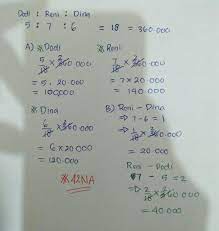 Dodi : Roni : Dina
5 : 7 : 6 = 18 = 360.000
A) ※ Dodi
5/18 × 360.000
= 5 . 20.000
= 100.000
※ Roni
7/18 × 360.000
= 7 × 20.000
= 140.000
※ Dina
6/18 × 360.000
= 6 × 20.000
= 120.000
B) Roni - Dina
⇒ 7 - 6 = 1
⇒ 1/18 × 360.000
= 20.000
Roni - Dodi
⇒ 7 - 5 = 2
⇒ 2/18 × 360.000
= 40.000
※ A2NA